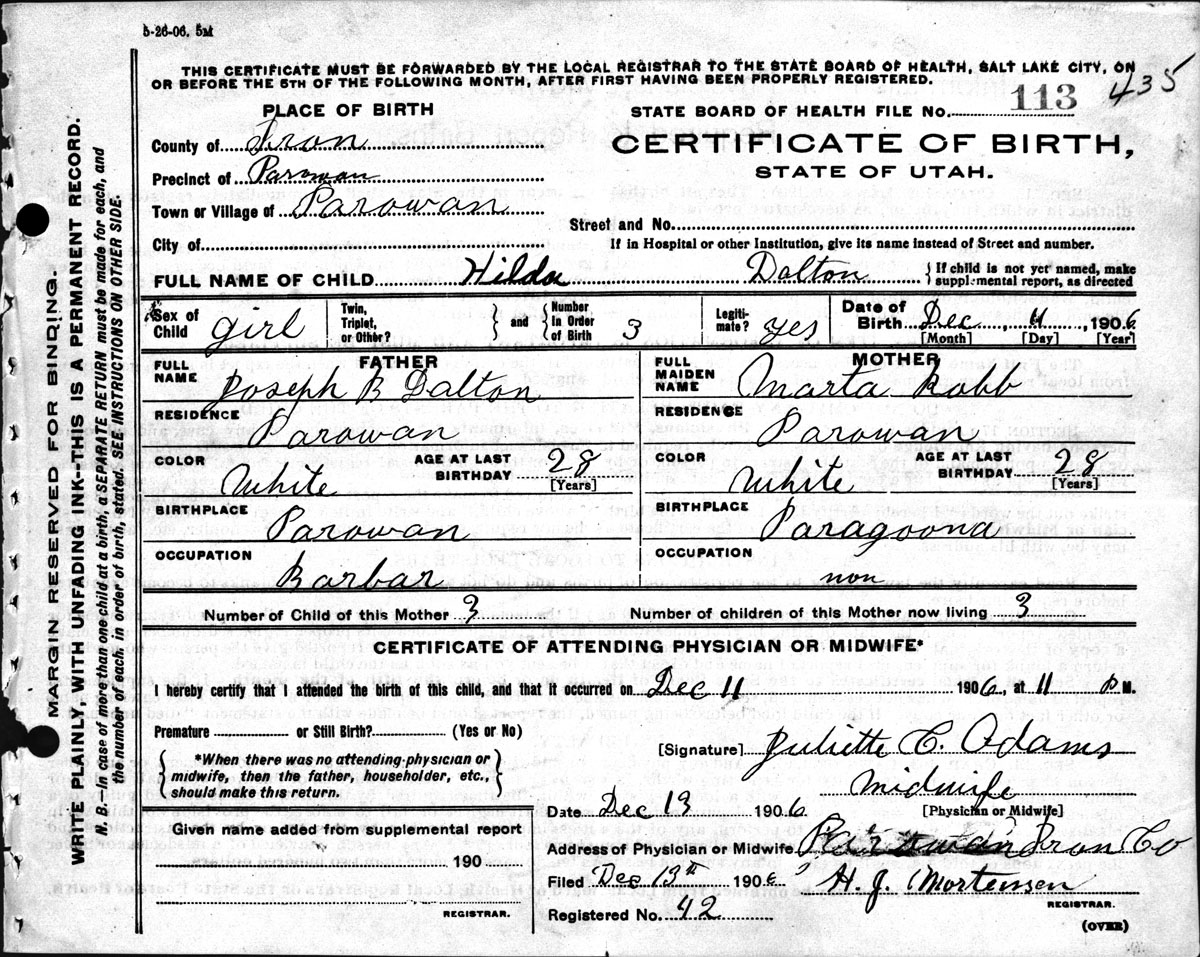 5-26-06. 5M
THIS CERTIFICATE MUST BE FORWARDED BY THE LOCAL REGISTRAR TO THE STATE BOARD OF HEALTH, SALT LAKE CITY, ON
OR BEFORE THE 5TH OF THE FOLLOWING MONTH, AFTER FIRST HAVING BEEN PROPERLY REGISTERED.
435
PLACE OF BIRTH
STATE BOARD OF HEALTH FILE No. 113
County of Iron
CERTIFICATE OF BIRTH,
STATE OF UTAH.
Precinct of Parowan
Town or Village of Parowan
Street and No.
City of
If in Hospital or other Institution, give its name instead of Street and number.
FULL NAME OF CHILD Hilda Dalton {If child is not yet named, make supplemental report, as directed
Sex of Child girl
Twin, Triplet, or Other?
and
Number in Order of Birth 3
Legitimate? yes
Date of Birth Dec, 11, 1906
[Month] [Day] [Year]
FATHER
FULL NAME Joseph B Dalton
RESIDENCE Parowan
COLOR White
AGE AT LAST BIRTHDAY 28
[Years]
BIRTHPLACE Parowan
OCCUPATION Barbar
MOTHER
FULL MAIDEN NAME Marta Robb
RESIDENCE Parowan
COLOR White
AGE AT LAST BIRTHDAY 28
[Years]
BIRTHPLACE Paragoona
OCCUPATION non
Number of Child of this Mother 3
Number of children of this Mother now living 3
CERTIFICATE OF ATTENDING PHYSICIAN OR MIDWIFE*
I hereby certify that I attended the birth of this child, and that it occurred on Dec 11 1906, at 11 P M.
Premature or Still Birth? (Yes or No)
*When there was no attending physician or
midwife, then the father, householder, etc.,
should make this return.
[Signature] Juliette C. Adams
Midwife
[Physician or Midwife]
Date Dec 13 1906
Address of Physician or Midwife Parowan Iron Co
Given name added from supplemental report
190
REGISTRAR.
Filed Dec 13th 1906
H. J. Mortensen
REGISTRAR.
Registered No. 42
(OVER)
MARGIN RESERVED FOR BINDING.
WRITE PLAINLY, WITH UNFADING INK—THIS IS A PERMANENT RECORD.
N. B.—In case of more than one child at a birth, a SEPARATE RETURN must be made for each, and
the number of each, in order of birth, stated. SEE INSTRUCTIONS ON OTHER SIDE.